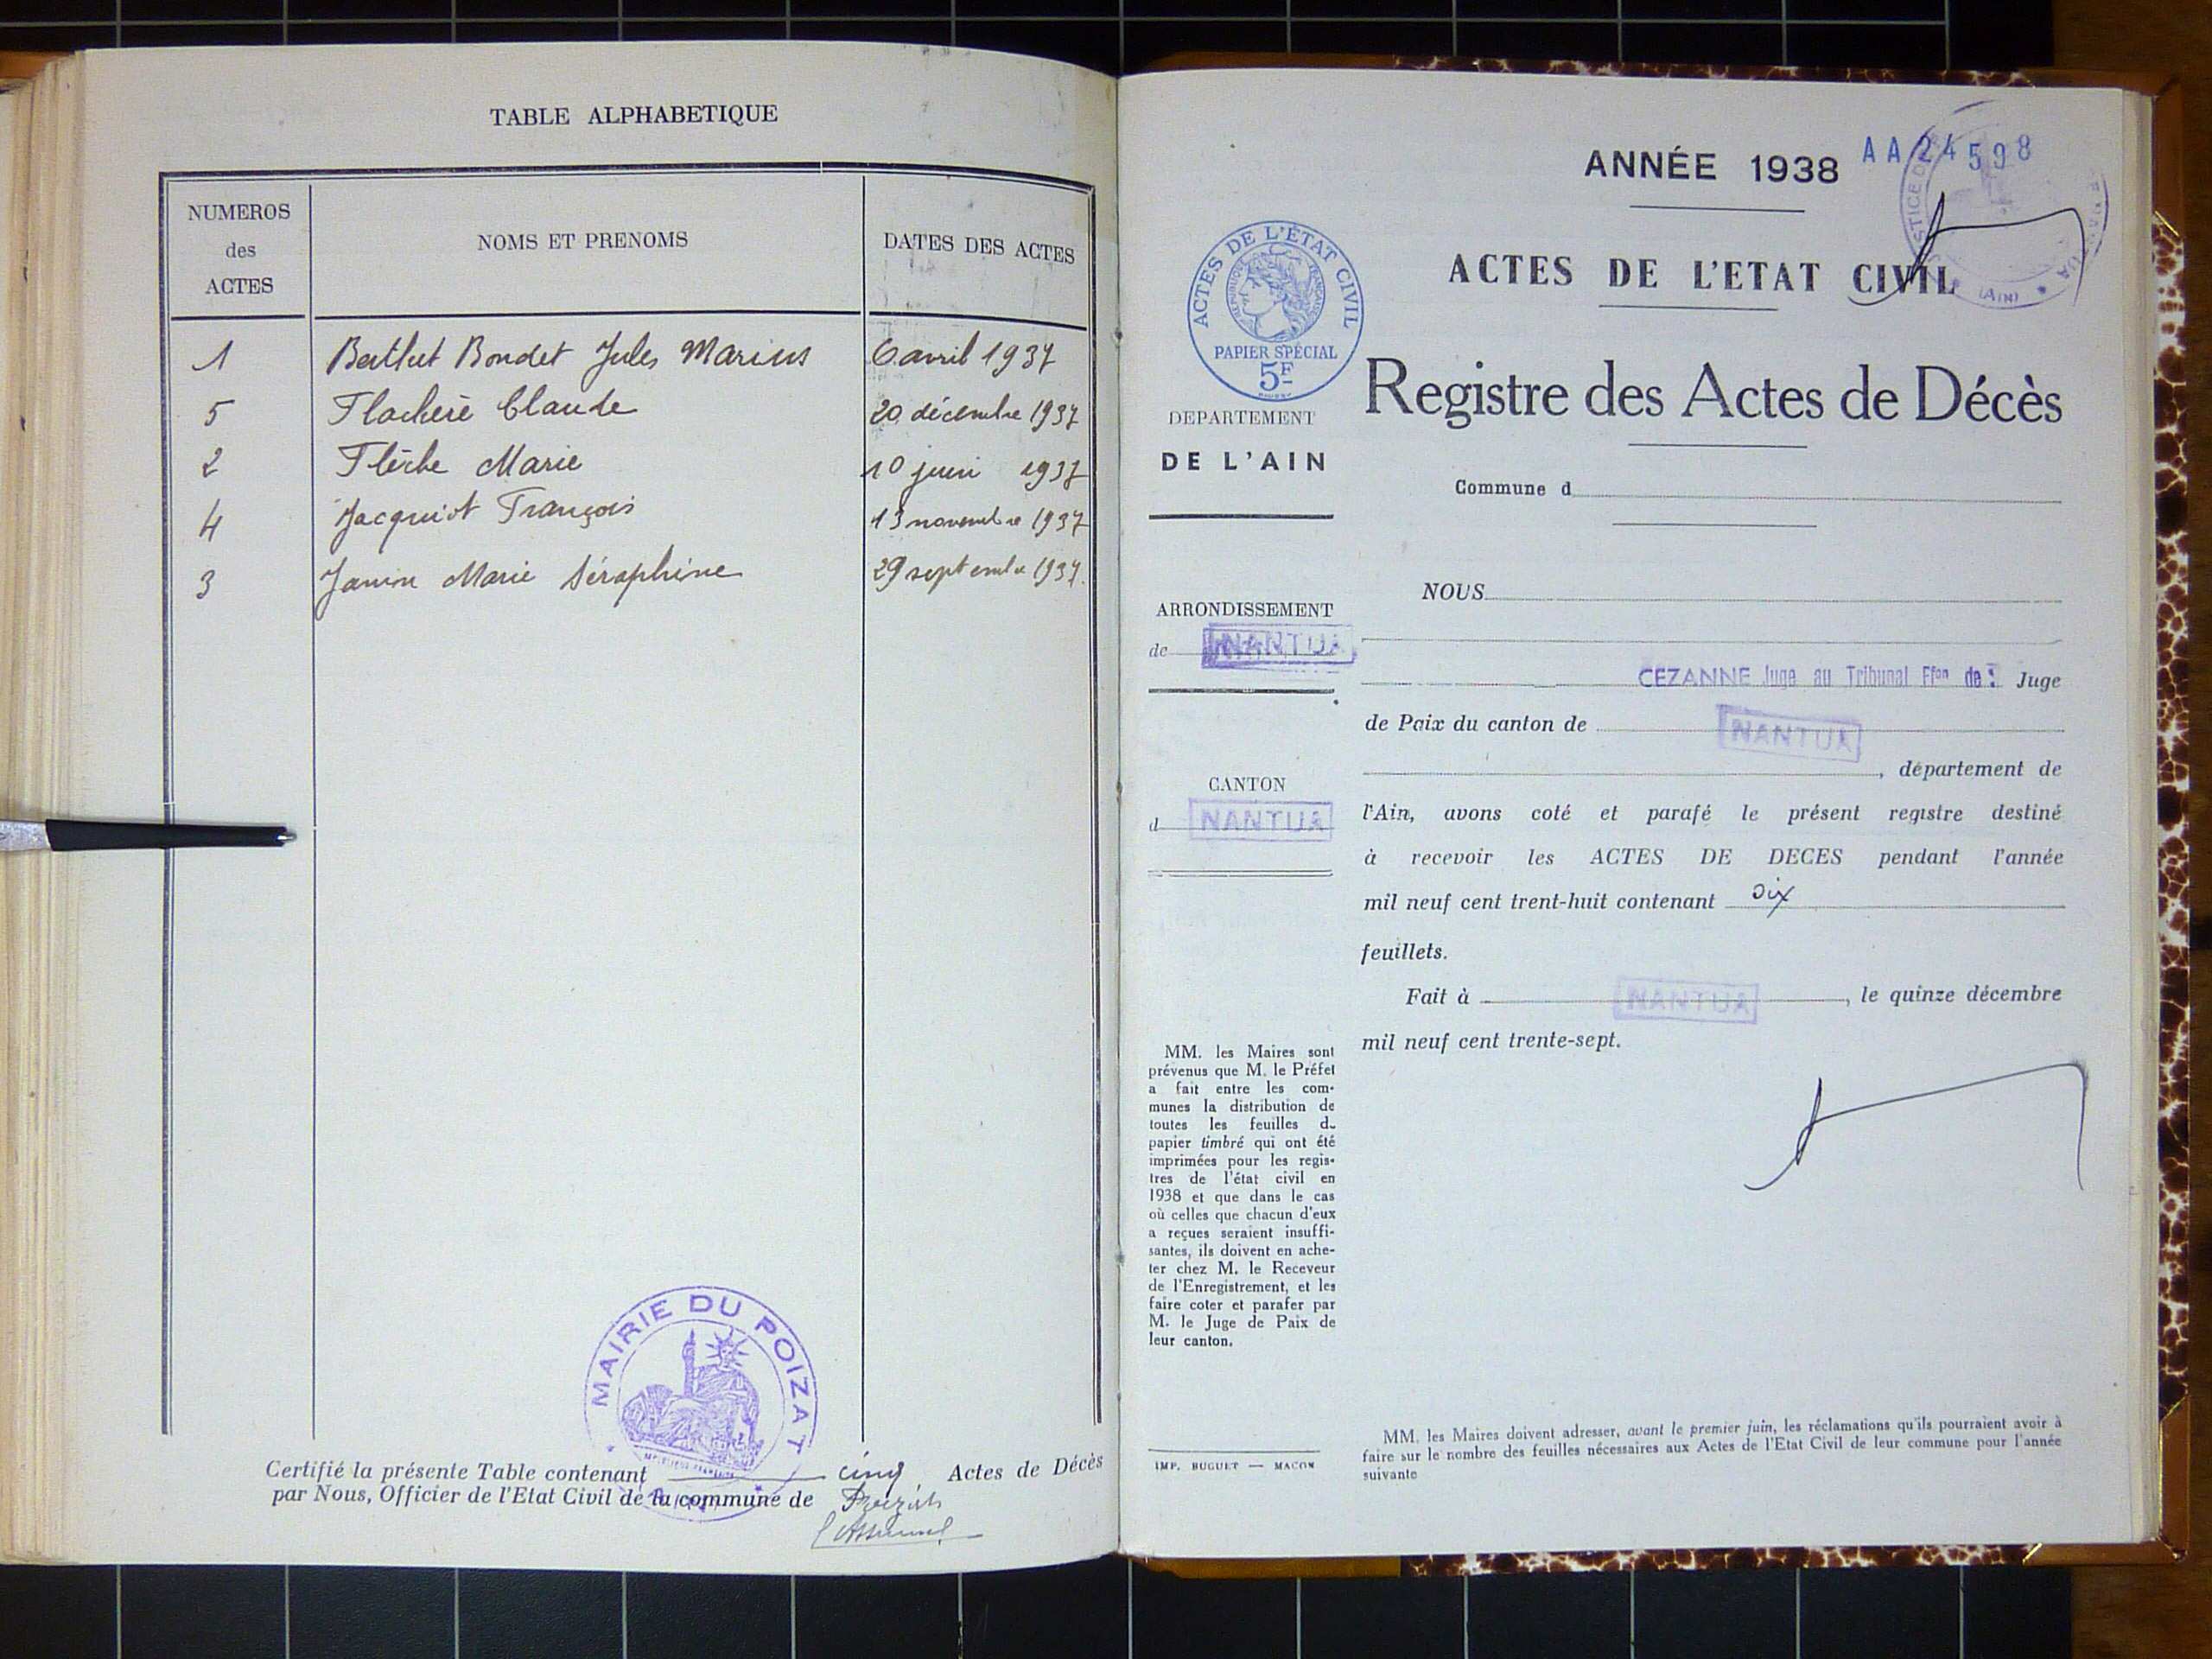 TABLE ALPHABETIQUE
NUMEROS
des
ACTES
NOMS ET PRENOMS
DATES DES ACTES
1 Berthet Bondet Jules Marius 6 avril 1937
5 Flachere Claude 20 décembre 1937
2 Flèche Marie 10 juin 1937
4 Jacquiot François 13 novembre 1937
3 Janin Marie Séraphine 29 septembre 1937.
MAIRIE DU POIZAT
Certifié la présente Table contenant cinq Actes de Décès
par Nous, Officier de l'Etat Civil de la commune de Poizat
ANNÉE 1938
AA 24598
(AIN)
ACTES DE L'ETAT CIVIL
ACTES DE L'ÉTAT CIVIL
PAPIER SPÉCIAL
5F
Registre des Actes de Décès
DEPARTEMENT
DE L'AIN
Commune d
ARRONDISSEMENT
de NANTUA
CANTON
d NANTUA
NOUS
CEZANNE Juge au Tribunal Ffon de : Juge
de Paix du canton de NANTUA
, département de
l'Ain, avons coté et parafé le présent registre destiné
à recevoir les ACTES DE DECES pendant l'année
mil neuf cent trent-huit contenant dix
feuillets.
Fait à NANTUA, le quinze décembre
mil neuf cent trente-sept.
MM. les Maires sont
prévenus que M. le Préfet
a fait entre les com-
munes la distribution de
toutes les feuilles d
papier timbré qui ont été
imprimées pour les regis-
tres de l'état civil en
1938 et que dans le cas
où celles que chacun d'eux
a reçues seraient insuffi-
santes, ils doivent en ache-
ter chez M. le Receveur
de l'Enregistrement, et les
faire coter et parafer par
M. le Juge de Paix de
leur canton.
IMP. BUGUET — MACON
MM. les Maires doivent adresser, avant le premier juin, les réclamations qu'ils pourraient avoir à
faire sur le nombre des feuilles nécessaires aux Actes de l'Etat Civil de leur commune pour l'année
suivante